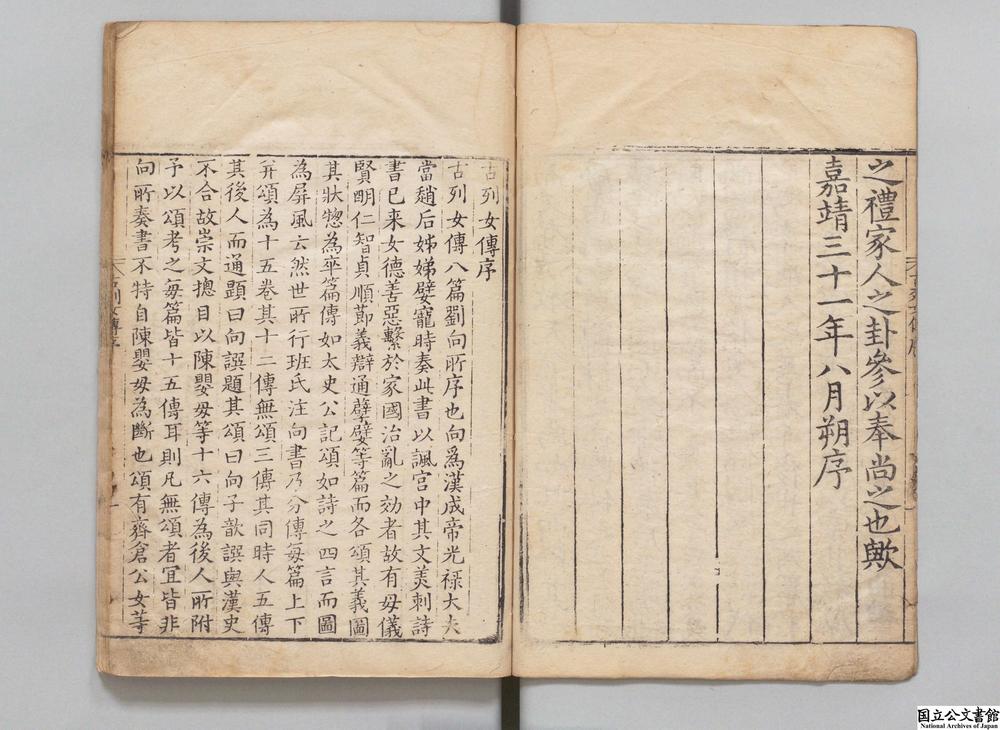 之禮家人之卦參以奉尚之也歟
嘉靖三十一年八月朔序
古列女傳序
古列女傳八篇劉向所序也向爲漢成帝光禄大夫
當趙后姊娣嬖寵時奏此書以諷宮中其文美刺詩
書已来女德善惡繫於家國治亂之効者故有母儀
賢明仁智貞順節義辯通孽嬖等篇而各頌其義圖
其狀惣為卒篇傳如太史公記頌如詩之四言而圖
為屏風云然世所行班氏注向書乃分傳每篇上下
并頌為十五卷其十二傳無頌三傳其同時人五傳
其後人而通題曰向譔題其頌曰向子歆譔與漢史
不合故崇文揔目以陳嬰母等十六傳為後人所附
予以頌考之每篇皆十五傳耳則凡無頌者宜皆非
向所奏書不特自陳嬰母為斷也頌有齊倉公女等
国立公文書館
National Archives of Japan